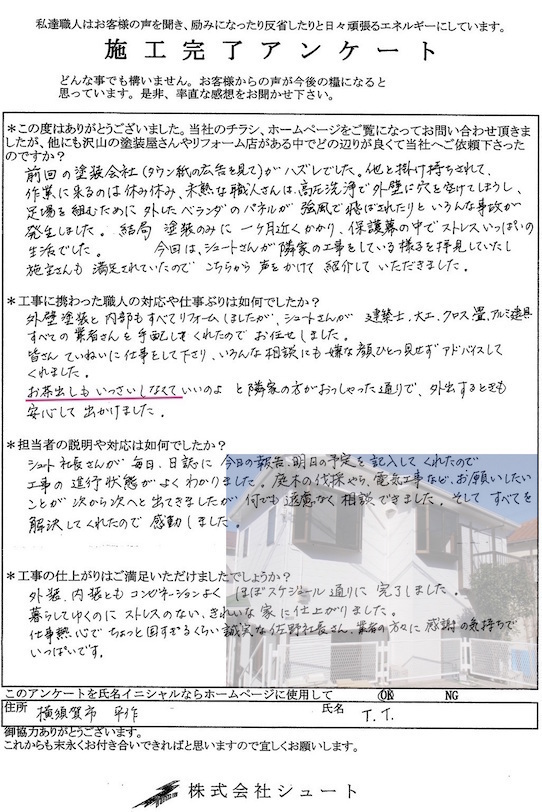 私達職人はお客様の声を聞き、励みになったり反省したりと日々頑張るエネルギーにしています。
施工完了アンケート
どんな事でも構いません。お客様からの声が今後の糧になると
思っています。是非、率直な感想をお聞かせ下さい。
＊この度はありがとうございました。当社のチラシ、ホームページをご覧になってお問い合わせ頂きま
したが、他にも沢山の塗装屋さんやリフォーム店がある中でどの辺りが良くて当社へご依頼下さった
のですか？
前回の塗装会社(タウン紙の広告を見て)がハズレでした。他と掛け持ちされて、
作業に来るのは休み休み、未熟な職人さんは、高圧洗浄で外壁に穴を空けてしまうし、
足場を組むために外したベランダのパネルが強風で飛ばされたりといろんな事故が
発生しました。結局 塗装のみに一ヶ月近くかかり、保護幕の中でストレスいっぱいの
生活でした。 今回は、シュートさんが隣家の工事をしている様子を拝見していたし
施主さんも満足されていたので こちらから声をかけて紹介していただきました。
＊工事に携わった職人の対応や仕事ぶりは如何でしたか？
外壁塗装と内部もすべてリフォームしましたが、シュートさんが 建築士、大工、クロス、畳、アルミ建具
すべての業者さんを手配してくれたので お任せしました。
皆さん ていねいに仕事をして下さり、いろんな相談にも嫌な顔ひとつ見せず アドバイスして
くれました。
お茶出しもいっさいしなくていいのよ と隣家の方がおっしゃった通りで、外出するときも
安心して出かけました。
＊担当者の説明や対応は如何でしたか？
シュート社長さんが毎日、日誌に 今日の報告、明日の予定を記入してくれたので
工事の進行状態がよくわかりました。庭木の伐採やら、電気工事など、お願いしたい
ことが次から次へと出てきましたが 何でも遠慮なく相談できました。そして すべてを
解決してくれたので 感動しました。
＊工事の仕上がりはご満足いただけましたでしょうか？
外装、内装とも コンビネーションよく ほぼスケジュール通りに完了しました。
暮らしてゆくのに ストレスのない、きれいな家に仕上がりました。
仕事熱心でちょっと固すぎるくらい誠実な佐野社長さん、業者の方々に 感謝の気持ちで
いっぱいです。
このアンケートを氏名イニシャルならホームページに使用して OK NG
住所 横須賀市 平作 氏名 T.T.
御協力ありがとうございます。
これからも末永くお付き合いできればと思いますので宜しくお願いします。
株式会社シュート